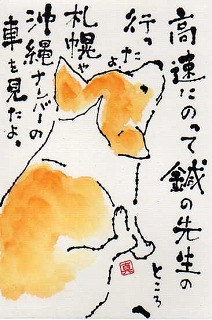 高速にのって鍼の先生の
ところへ
行ったよ。
札幌や
沖縄ナンバーの
車を見たよ。
真